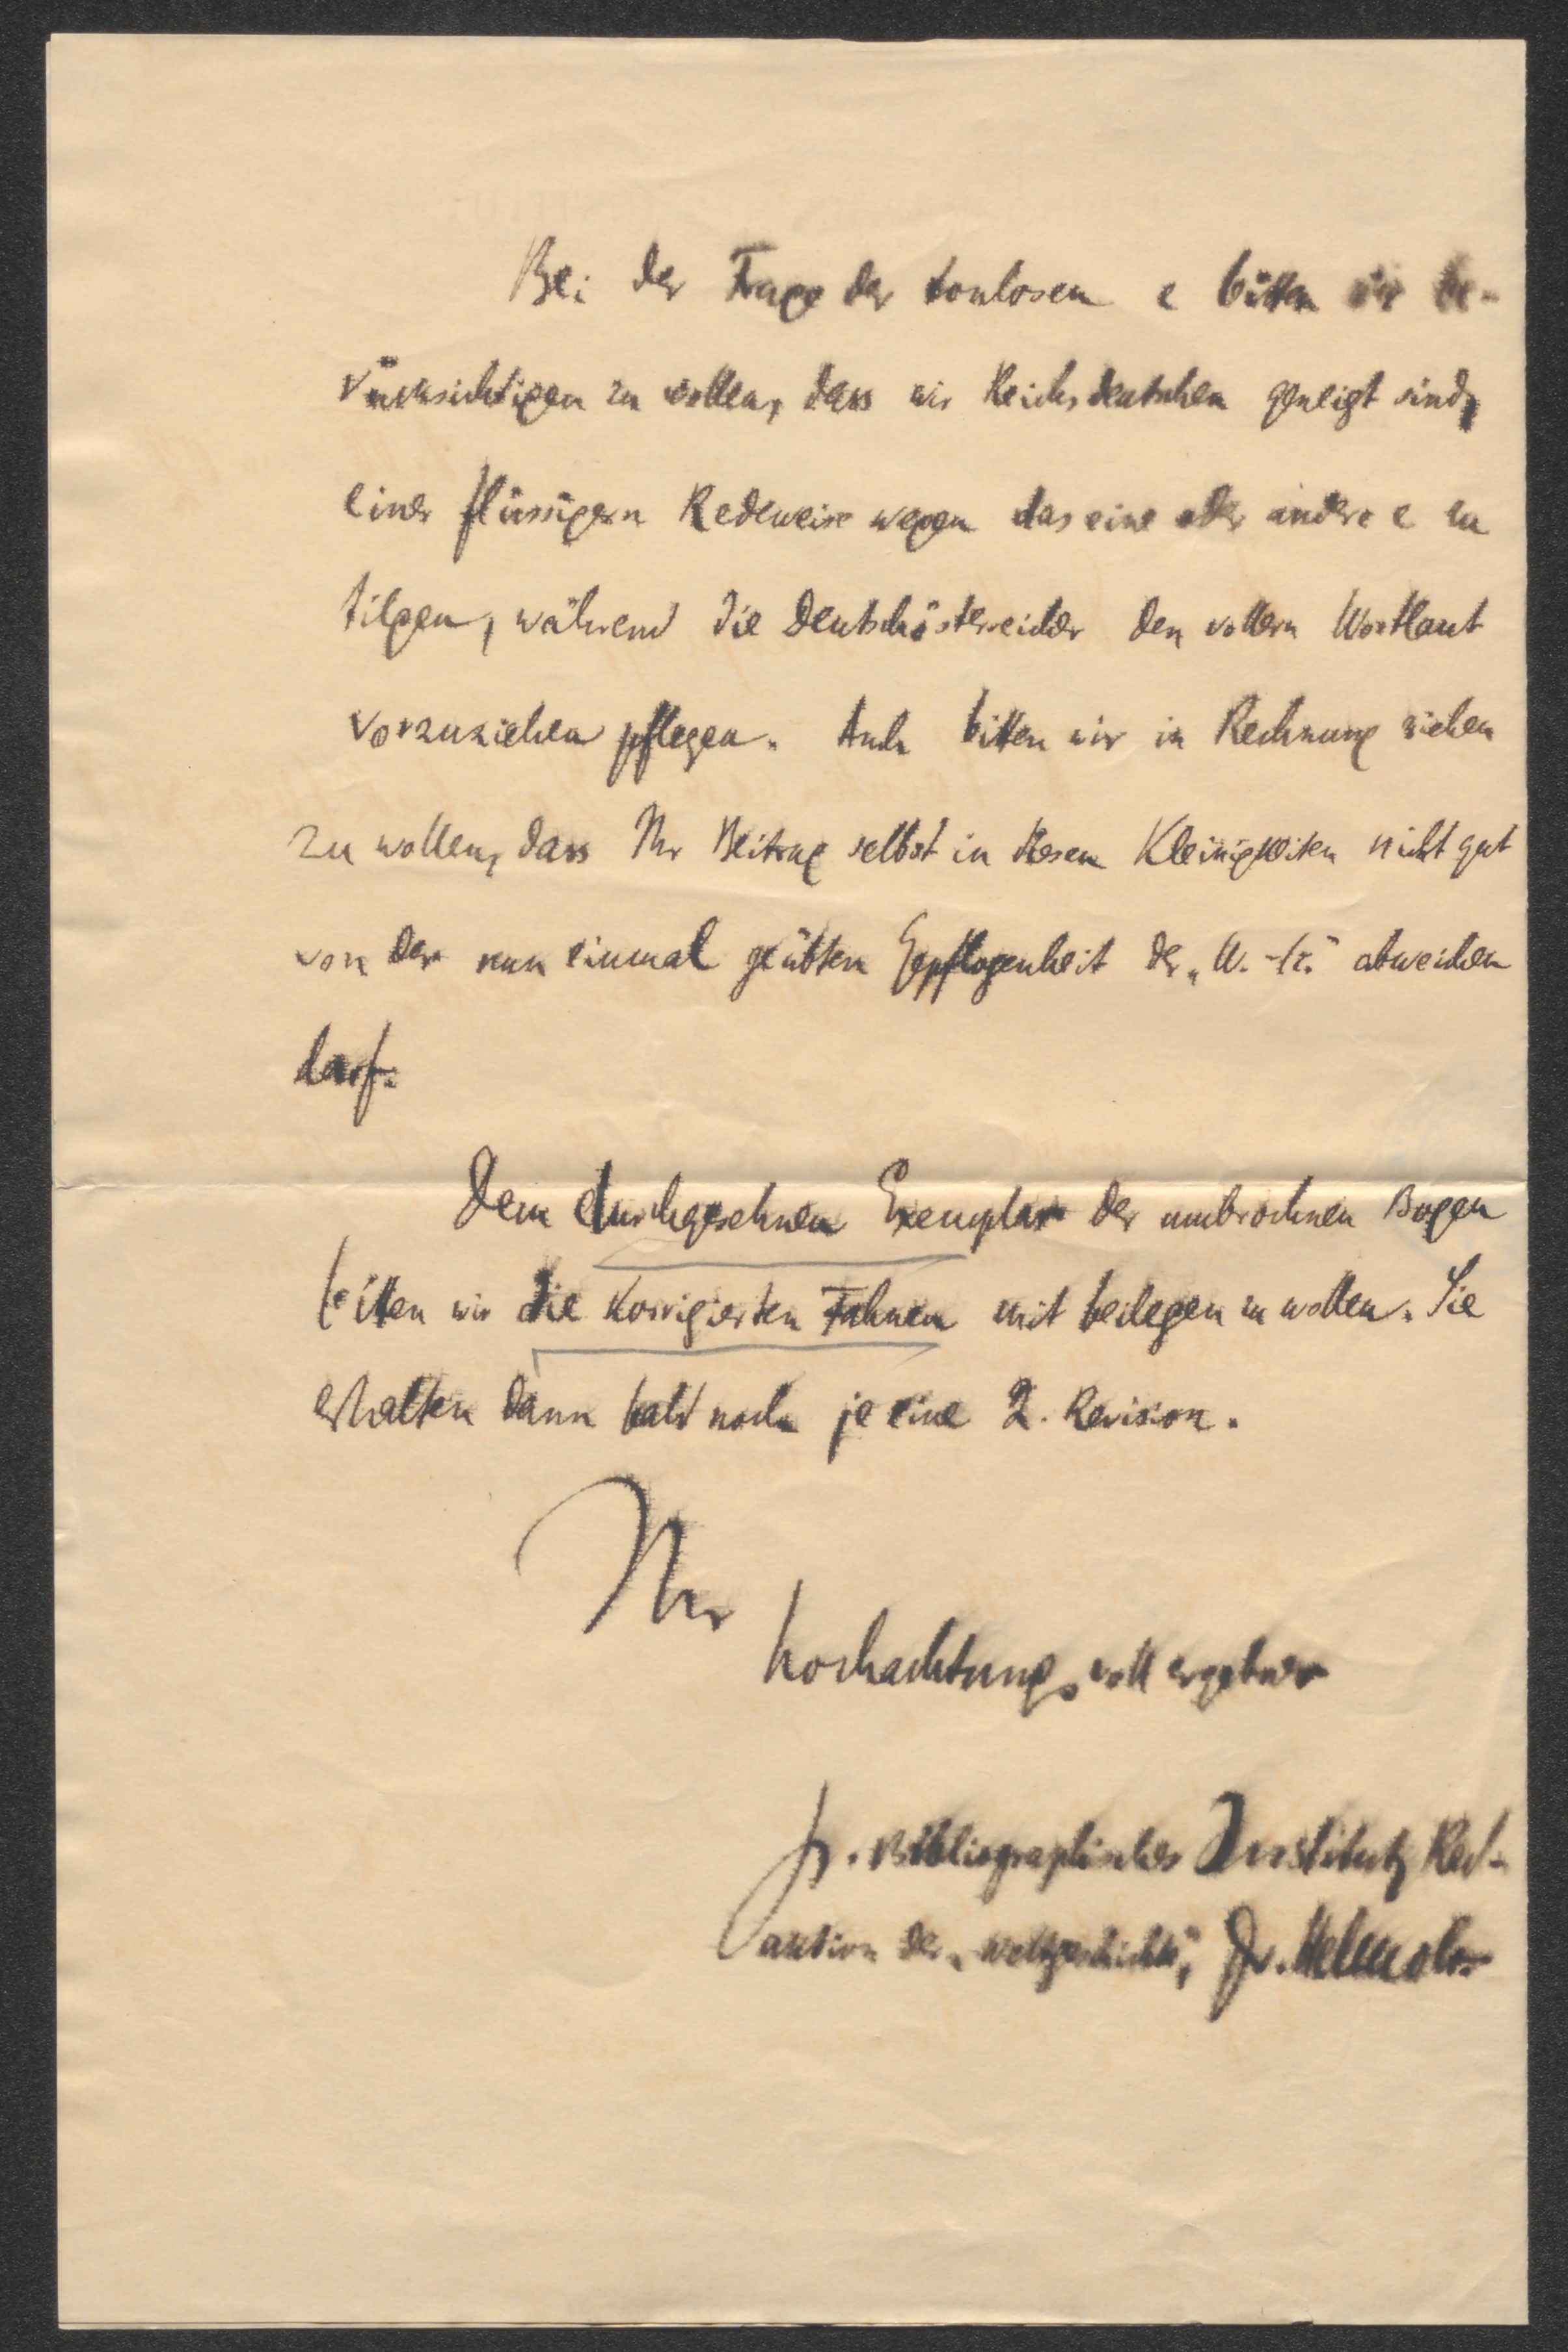 Bei der Frage der tonlosen e bitten wir be-
rücksichtigen zu wollen, dass wir Reichsdeutschen geneigt sind,
einer flüssigern Redeweise wegen das eine oder andere e zu
tilgen, während die Deutschösterreicher den vollern Wortlaut
vorzuziehen pflegen. Auch bitten wir in Rechnung ziehen
zu wollen, dass Ihr Beitrag selbst in diesen Kleinigkeiten nicht gut
von der nun einmal geübten Gepflogenheit der „W.-G." abweichen
darf.
Dem durchgesehnen Exemplar der umbrochnen Bogen
bitten wir die korrigierten Fahnen mit beilegen zu wollen. Sie
erhalten dann bald noch je eine 2. Revision.
Ihr
hochachtungsvoll ergebner
Bibliographisches Institut, Red-
aktion der „Weltgeschichte", Dr. Helmolt